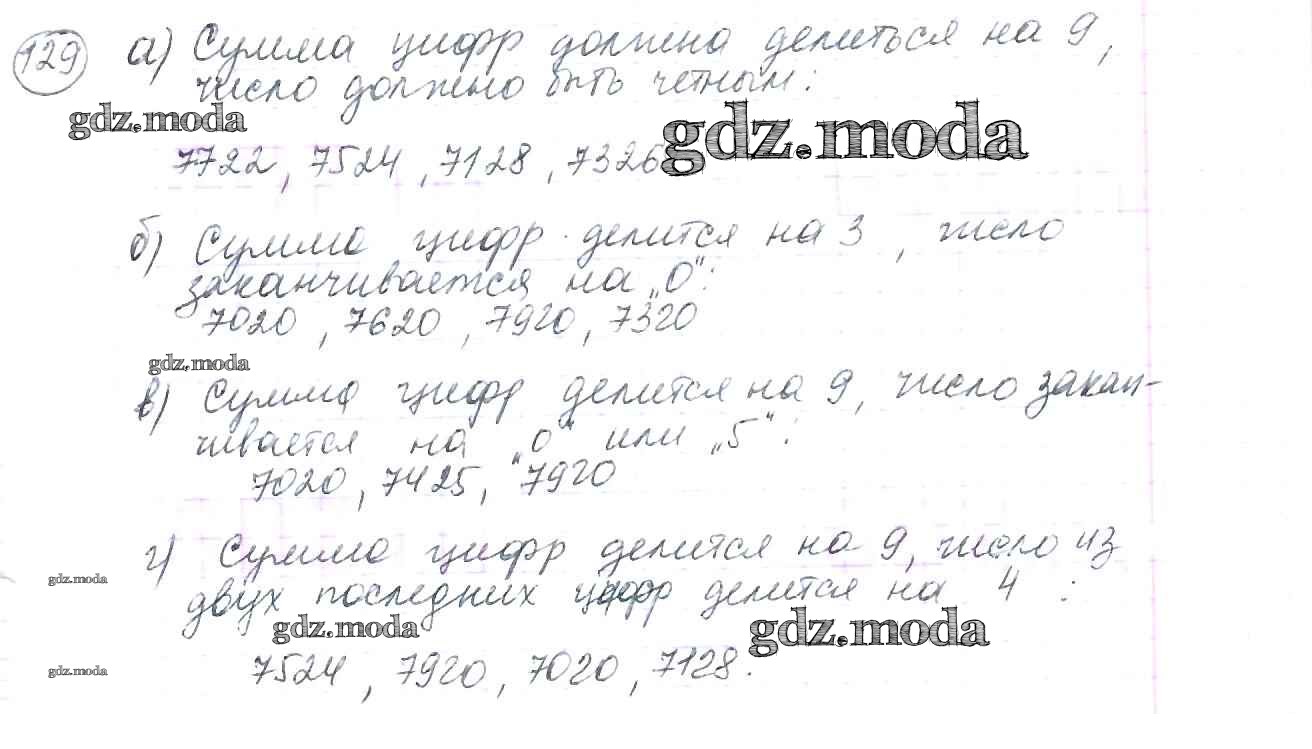 129 а) Сумма цифр должна делиться на 9,
число должно быть четным:
gdz.moda gdz.moda
7722, 7524, 7128, 7326
б) Сумма цифр делится на 3, число
заканчивается на „0“:
7020, 7620, 7920, 7320
gdz.moda
в) Сумма цифр делится на 9, число закан-
чивается на „0“ или „5“:
7020, 7425, 7920
г) Сумма цифр делится на 9, число из
gdz.moda
двух последних цифр делится на 4:
gdz.moda gdz.moda
gdz.moda
7524, 7920, 7020, 7128.